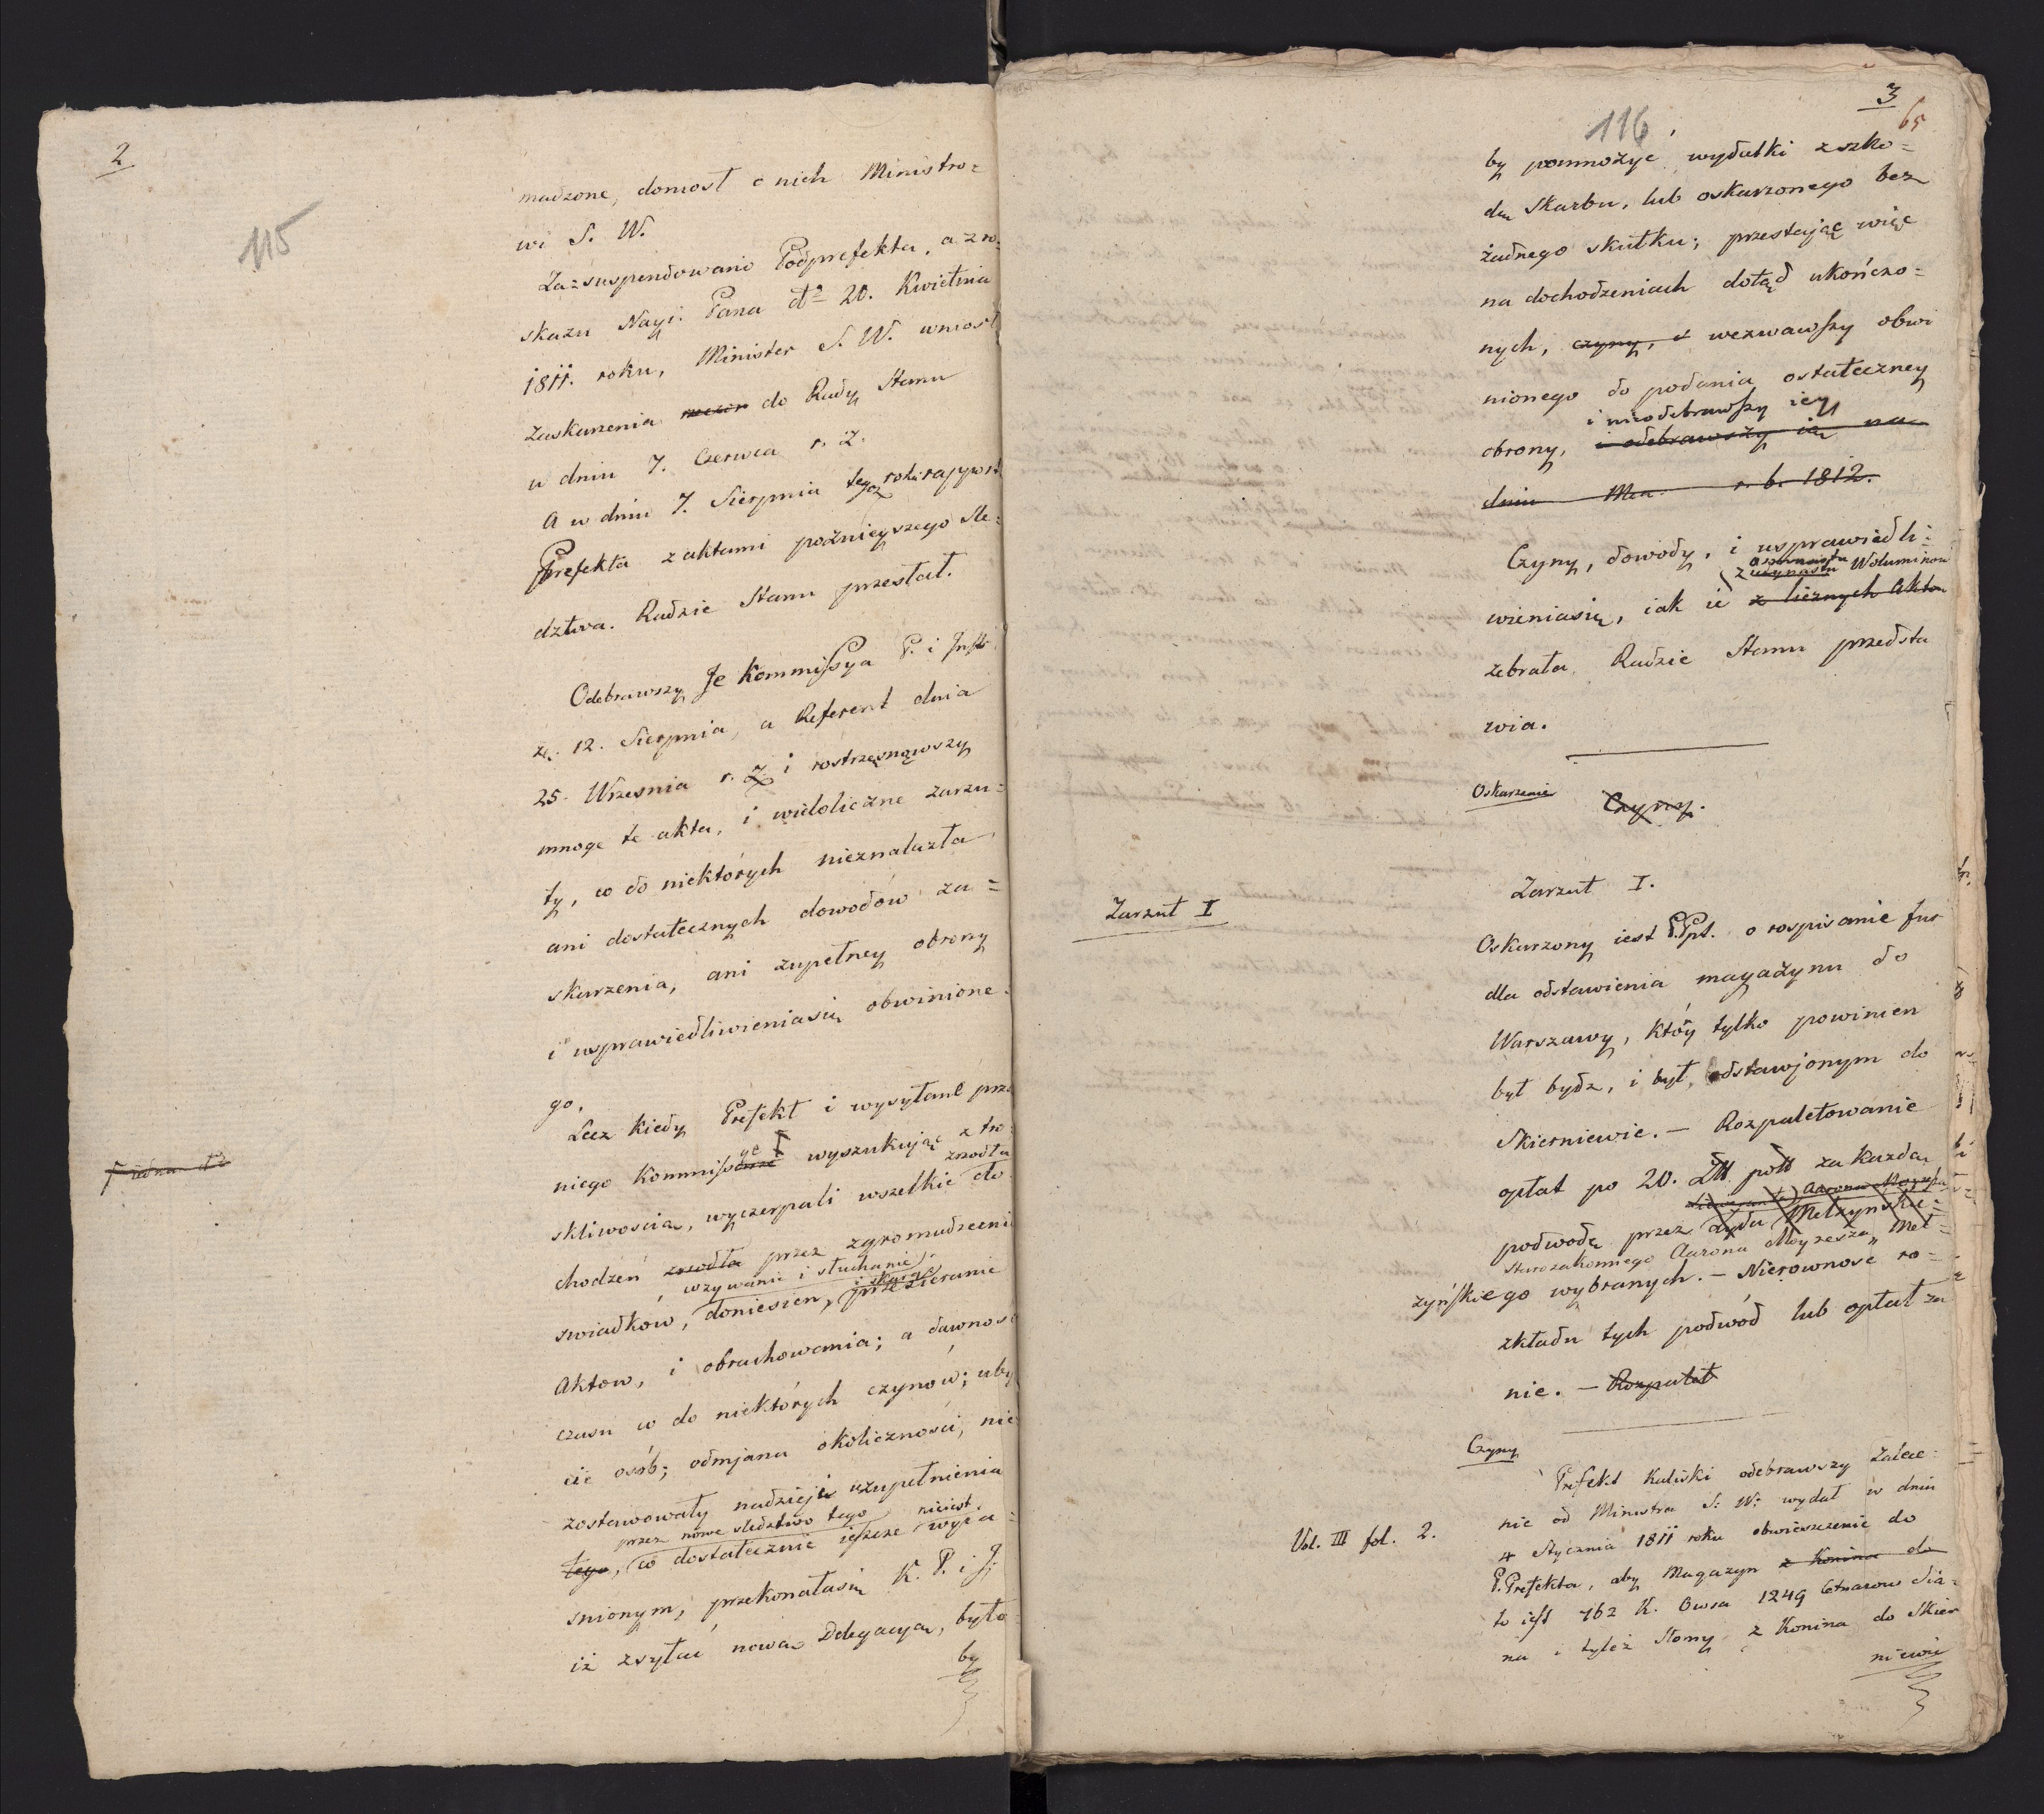 2
115
madzone, doniosł o nich Ministro=
wi S. W.
Zasuspendowano Podprefekta, a z ro=
skazu Nayj. Pana dto 20. Kwietnia
1811. roku, Minister S. W. wniosł
zaskarzenia do Rady Stanu
w dniu 7. Czerwca r. z.
A w dniu 7. Sierpnia tegoż roku rapport
Prefekta z aktami poźnieyszego Sle=
dztwa. Radzie Stanu przesłał.
Odebrawszy Je Kommissya P. i Instr.
12. Sierpnia, a Referent dnia
25. Wrzesnia r. z. i rostrząsnąwszy
mnogę te akta, i wieloliczne zarzu=
ty, co do niektórych nieznalazła
ani dostatecznych dowodów za=
skarzenia, ani zupełney obrony
i usprawiedliwieniasię obwinione=
go.
Lecz kiedy Prefekt i wysyłane prze
niego Kommissye wyszukując z tro=
źrodła
skliwoscią, wyczerpali wszelkie do=
chodzeń zrodła przez zgromadzenie
, wzywanie i słuchanie
swiadkow, doniesien, i skarg przezieranie
Aktow, i obrachowania; a dawnosć
czasu co do niektórych czynów; uby
cie osób; odmjana okoliczności, nie
zostawowały nadzieji uzupełnienia
przez nowe sledztwo tego nieiest
tego, co dostatecznie ieszcze wyja=
snionym; przekonałasię K. P. i J.
iż zsyłać nową Delegacyą, było=
by
3
116
65
by pomnożyć wydatki z szko=
dą Skarbu, lub oskarzonego bez
żadnego skutku; przestając więc
na dochodzeniach dotąd ukończo=
nych, czyny, i wezwawszy obwi
nionego do podania ostateczney
i nieodebrawszy iey
obrony, i odebrawszy ią na
dniu Mca r. b. 1812.
Czyny, dowody, i usprawiedli=
Woluminow
wieniasię, iak ie z licznych Aktow
zebrała Radzie Stanu przedsta
wia.
Oskarzenie
Czyny.
Zarzut I
Zarzut I.
Oskarzony iest P.Pft. o rospisanie fur
dla odstawienia magazynu do
Warszawy, który tylko powinien
był bydz, i był, odstawjonym do
Skierniewic. — Rozpaletowanie
opłat po 20. Złł pol za każdą
podwodę przez żyda Metzynskie=
Starozakonnego Aarona Moyzesza Met=
zyńskiego wybranych. — Nierownosć ro=
zkładu tych podwód lub opłat za
nie. — Rozpalet
Czyny
Prefekt Kaliski odebrawszy Zalece=
nie od Ministra S: W: wydał w dniu
Vol. III fol. 2.
4 Stycznia 1811 roku obwieszczenie do
P.Prefekta, aby Magazyn z Konina do
to iest 762 K. Owsa 1249 Cetnarow Sia=
na i tyleż Słomy z Konina do Skier
niewic